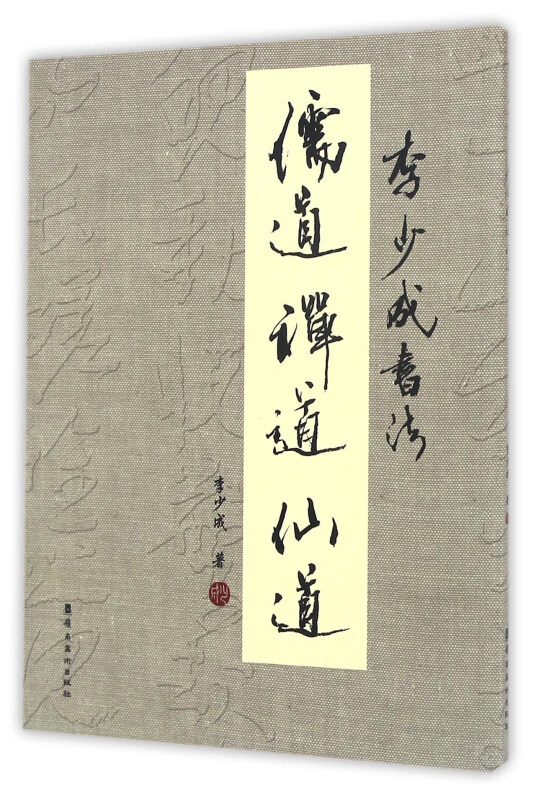 李少成书法
儒道 禅道 仙道
李少成 著
岭南美术出版社